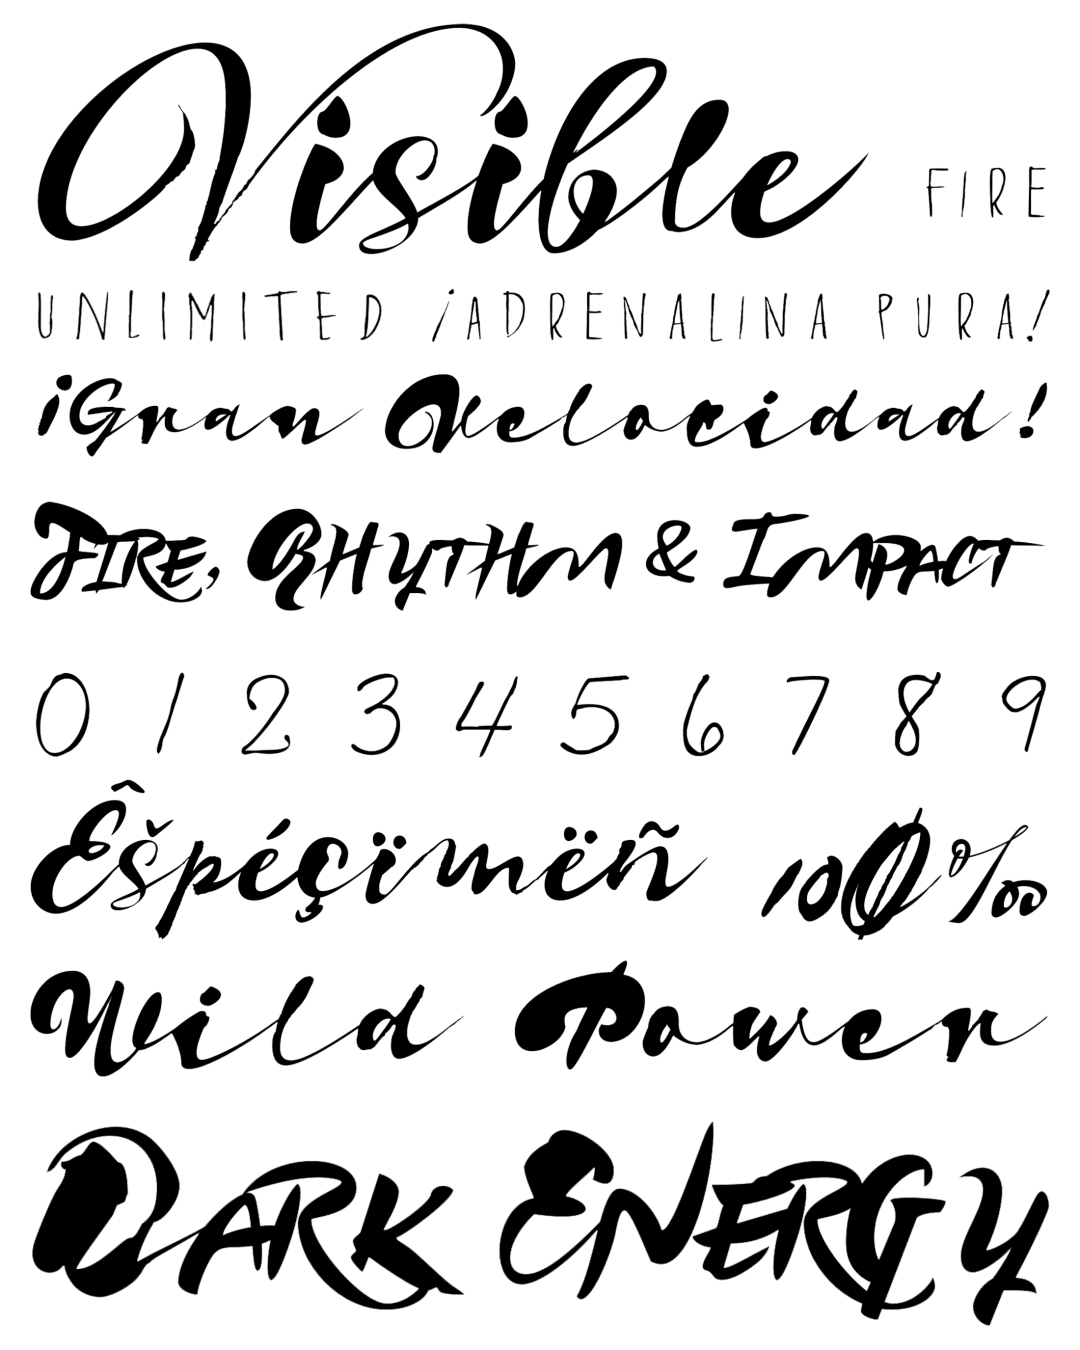 Visible FIRE
UNLIMITED ¡ADRENALINA PURA!
¡Gran Velocidad!
FIRE, RHYTHM & IMPACT
0 1 2 3 4 5 6 7 8 9
Êšpéçïmëñ 100‰
Wild Power
DARK ENERGY